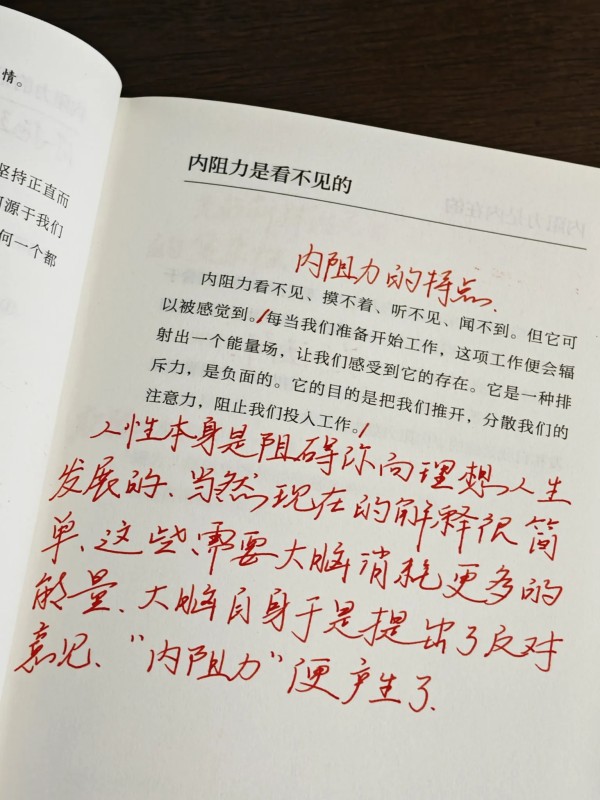 情。
坚持正直而
可源于我们
何一个都
内阻力是看不见的
内阻力的特点.
内阻力看不见、摸不着、听不见、闻不到。但它可
以被感觉到。/每当我们准备开始工作，这项工作便会辐
射出一个能量场，让我们感受到它的存在。它是一种排
斥力，是负面的。它的目的是把我们推开，分散我们的
注意力，阻止我们投入工作。/
人性本身是阻碍你向理想人生
发展的、当然现在的解释很简
单、这些需要大脑消耗更多的
能量、大脑自身于是提出了反对
意见、“内阻力”便产生了.